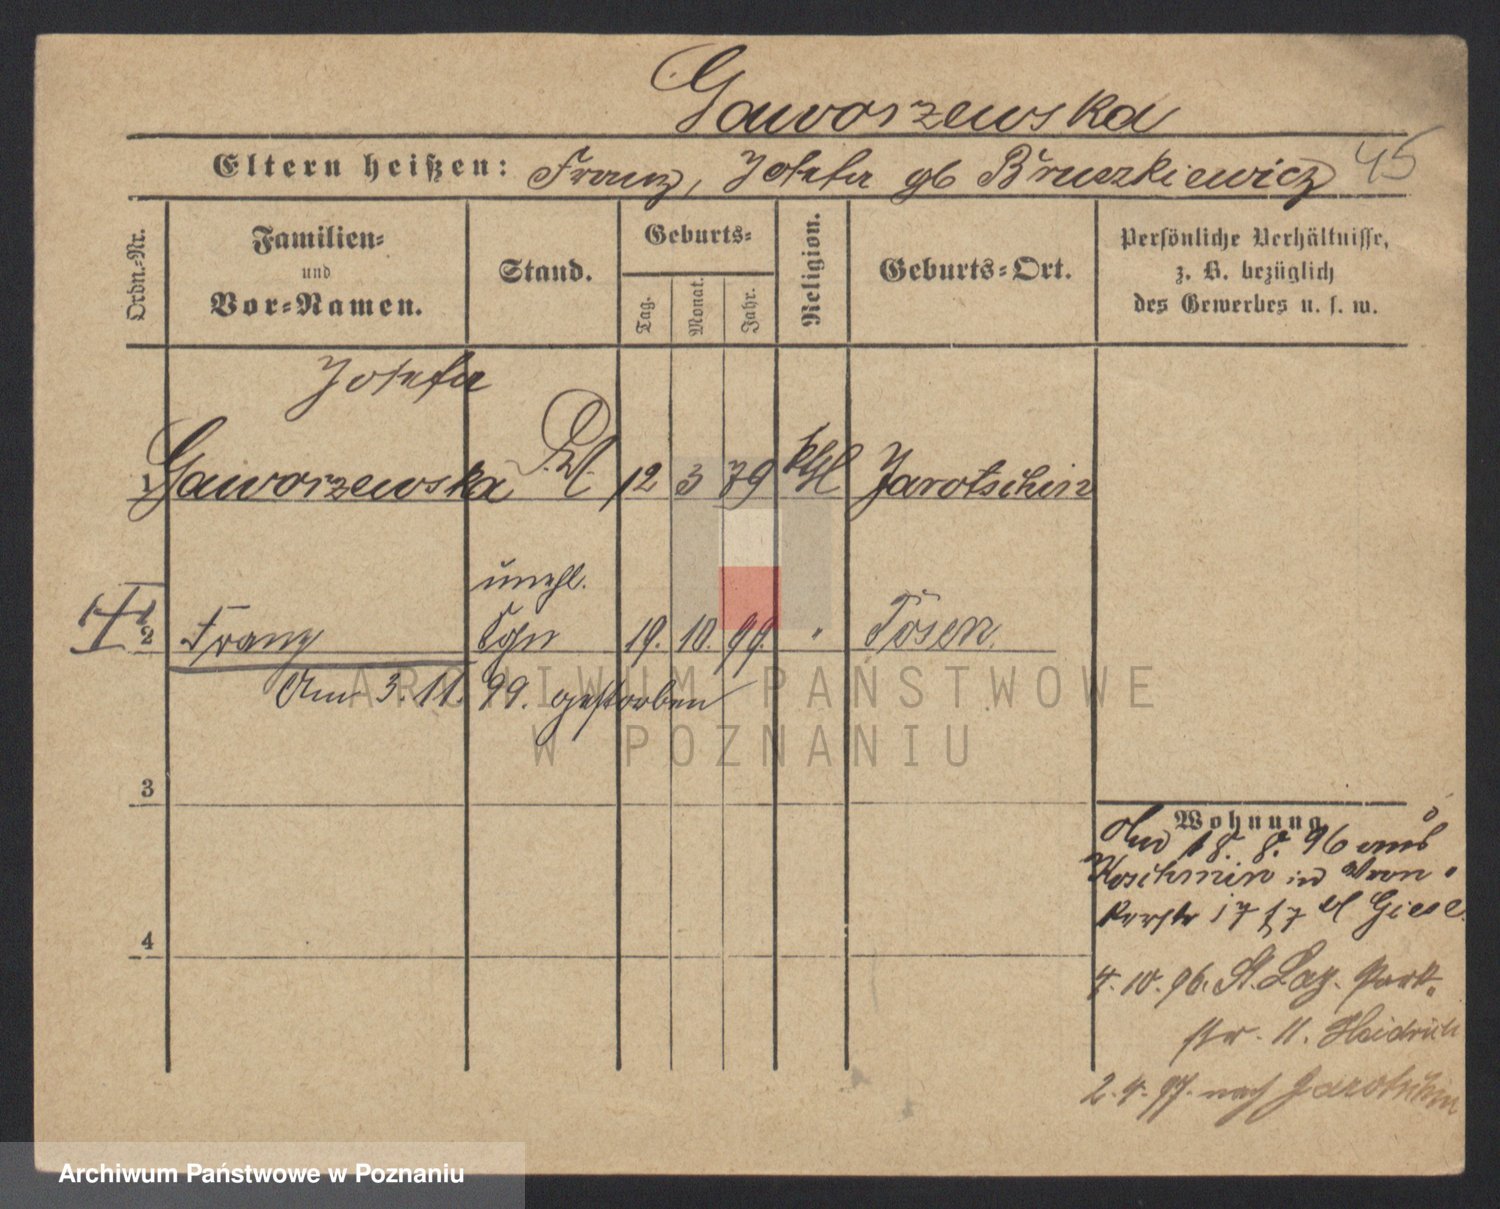 Gaworzewska
Eltern heißen: Franz, Josefa gb Bruszkiewicz 45
Ordn.-Nr.
Familien-
und
Vor-Namen.
Stand.
Geburts-
Tag.
Monat.
Jahr.
Religion.
Geburts-Ort.
Persönliche Verhältnisse,
z. B. bezüglich
des Gewerbes u. s. w.
Josefa
Gaworzewska 12 3 79 kth Jarotschin
unehl.
2 Franz Sohn 19. 10. 99. " Posen.
Am 3. 11. 99. gestorben
3
4
Wohnung
Am 18. 8. 96 aus
Koschmin in Wron-
kerstr 17 bl Giese
4.10.96. St. Laz. Park-
str. 11. Heidrich
2.4.97. nach Jarotschin
ARCHIWUM PAŃSTWOWE
W POZNANIU
Archiwum Państwowe w Poznaniu